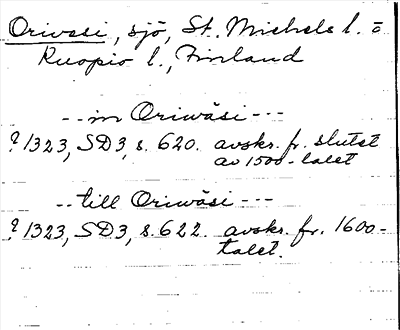 Orivesi, sjö, St. Michels l. o
Kuopio l., Finland
-- in Oriwäsi ---
? 1323, SD3, s. 620. avskr. fr. slutet
av 1500-talet
-- till Oriwäsi ---
? 1323, SD3, s. 622. avskr. fr. 1600-
talet.